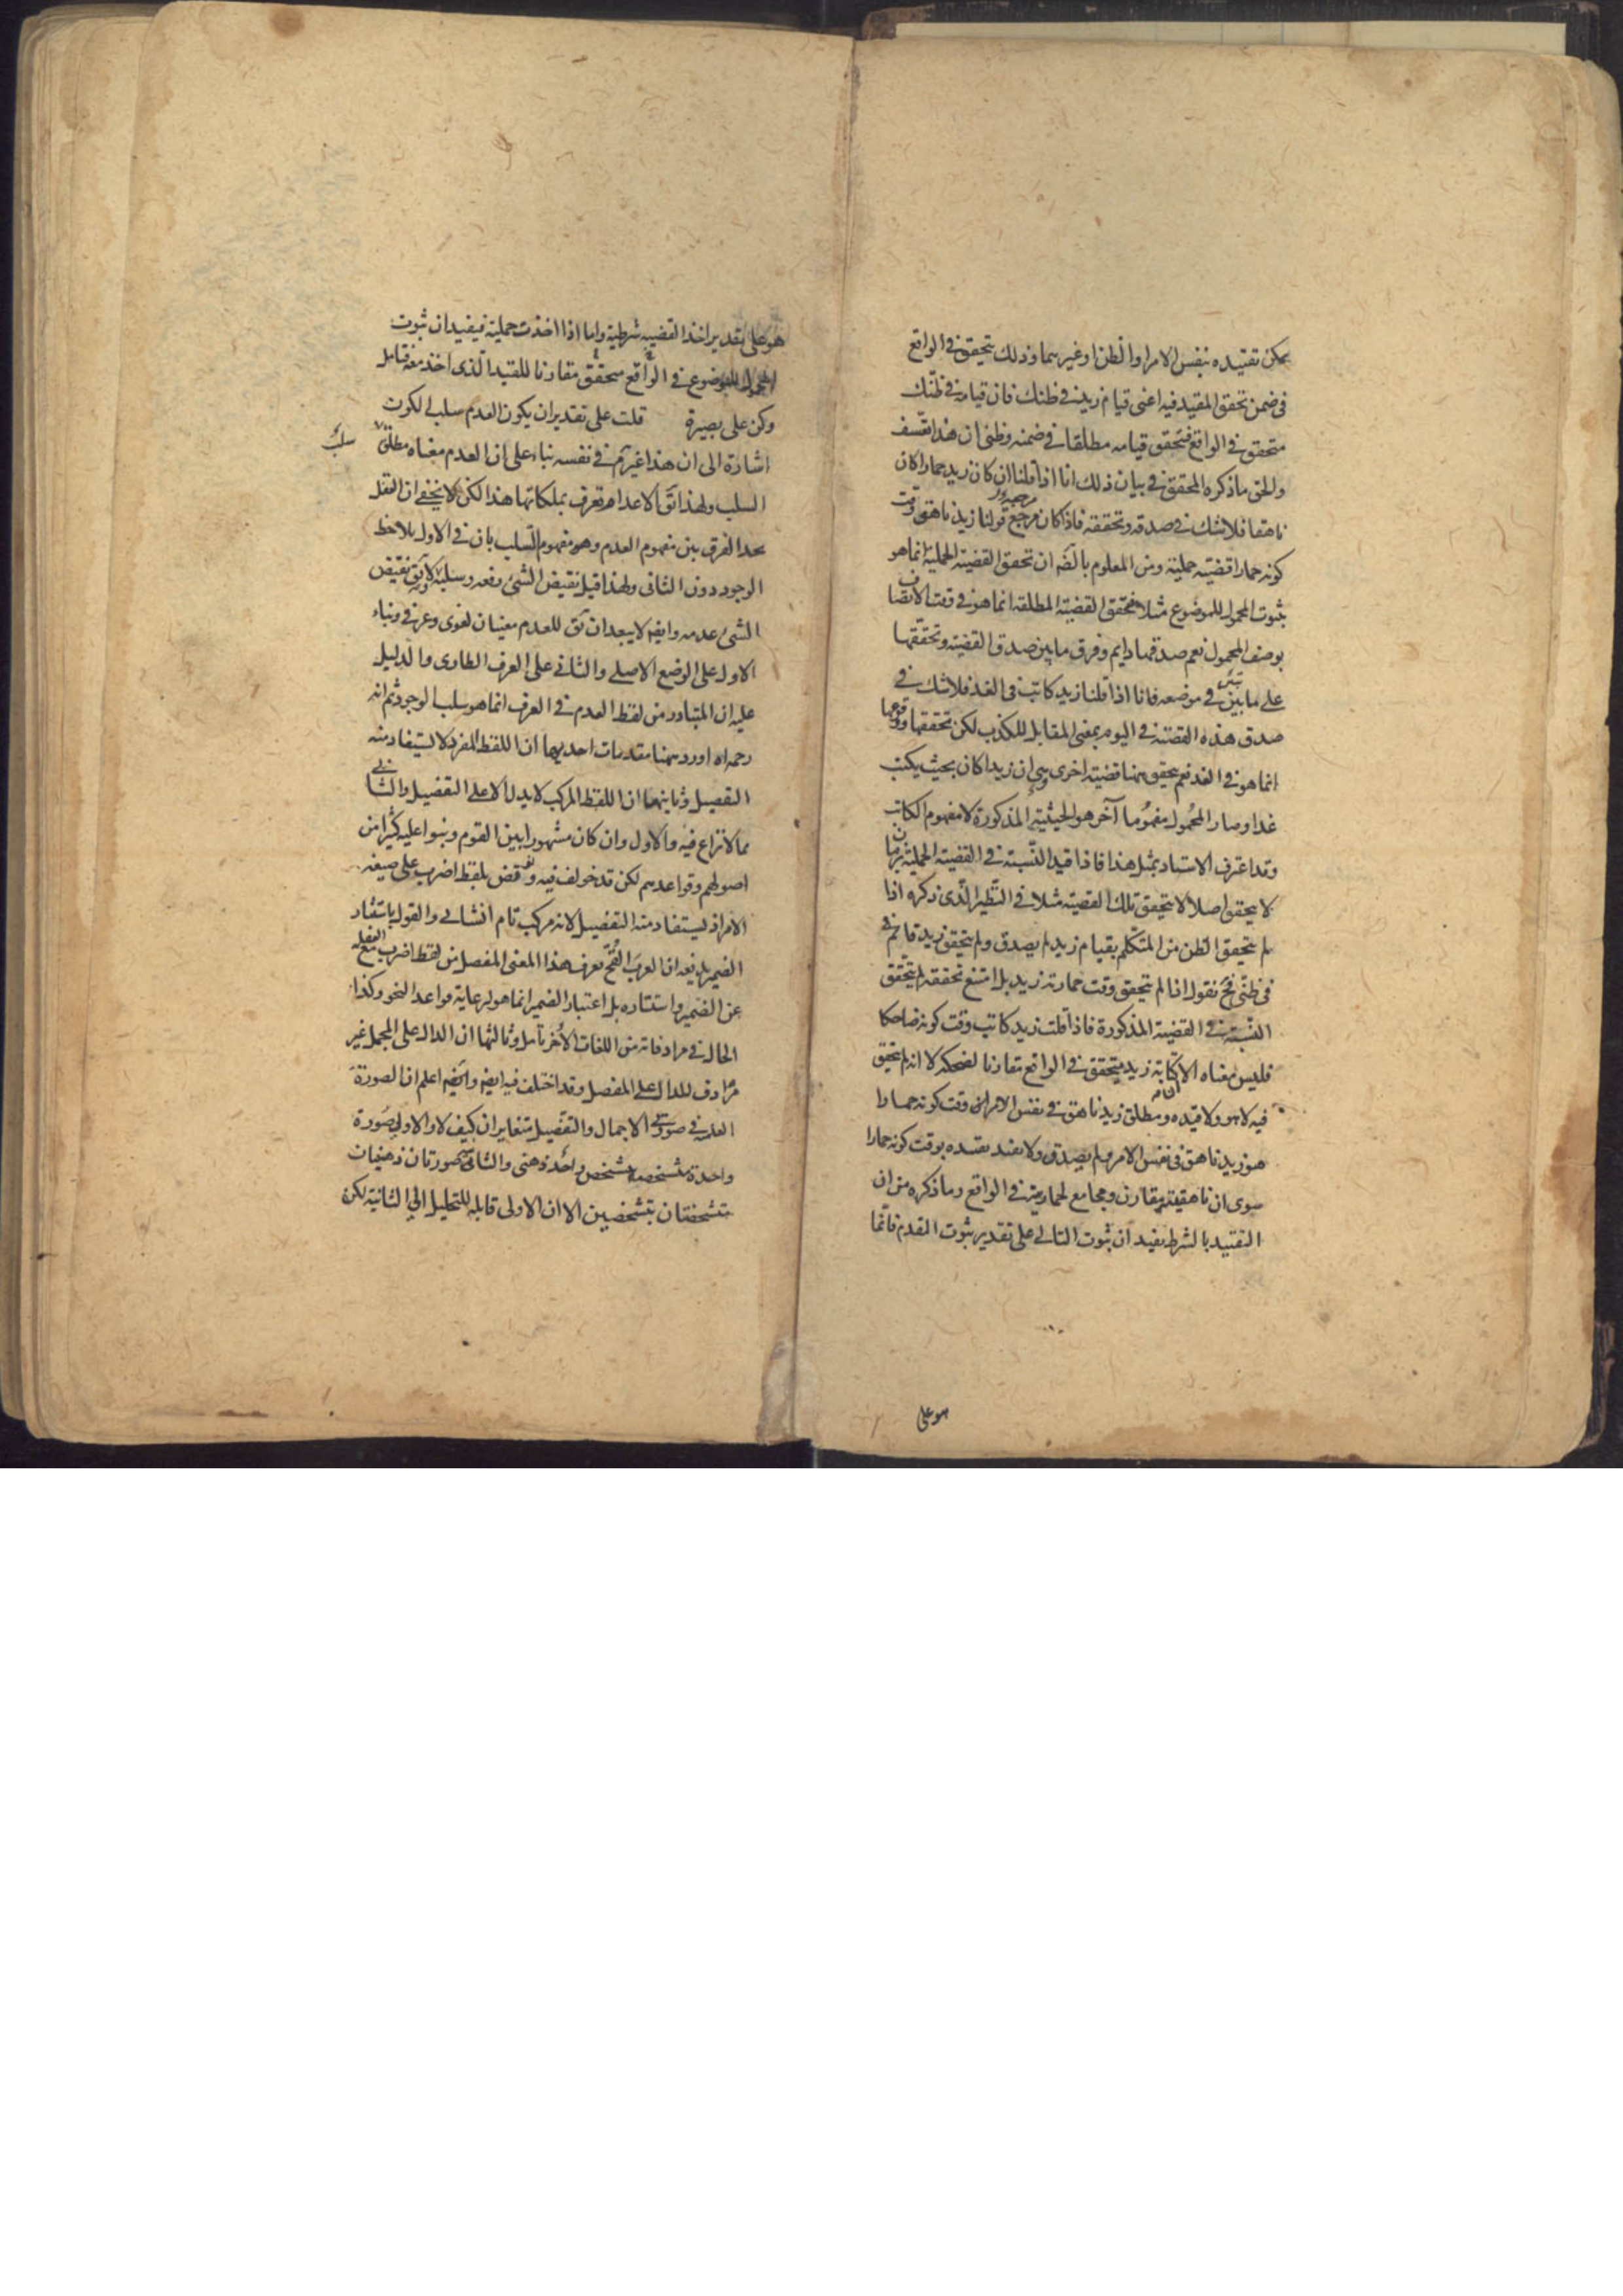 يمكن تقييده بنفس الامر او الظن او غيرهما وذلك يتحقق في الواقع
في ضمن تحقق المقيد فيه اعنى قيام زيد في ظنك فان قيامه في ظنك
متحقق في الواقع فتحقق قيامه مطلقا في ضمنه وظنى ان هذا تعسف
والحق ما ذكره المحقق في بيان ذلك انا اذا قلنا ان كان زيد حمارا كان
ناهقا فلا شك في صدقه وتحققه فاذا كان مرجع قولنا زيد ناهق وقت
كونه حمارا قضية حملية ومن المعلوم بالضه ان تحقق القضية الحملية انما هو
بثبوت المحمول للموضوع مثلا فتحقق القضية المطلقة انما هو في وقت الاتصاف
بوصف المحمول نعم صدقها دايم وفرق ما بين صدق القضية وتحققها
على ما بين في موضعه فانا اذا قلنا زيد كاتب في الغد فلا شك في
صدق هذه القضية في اليوم بمعنى المقابل للكذب لكن تحققها ووقوعها
انما هو في الغد نعم يتحقق هنا قضية اخرى وهي ان زيدا كان بحيث يكتب
غدا وصار المحمول مفهوما آخر هو الحيثية المذكورة لا مفهوم الكاتب
وقد اعترف الاستاد بمثل هذا فاذا قيد النسبة في القضية الحملية بزمان
لا يتحقق اصلا لا يتحقق تلك القضية مثلا في النظير الذى ذكره اذا
لم يتحقق الظن من المتكلم بقيام زيد لم يصدق ولم يتحقق زيد قائم في
في ظنى فح نقول اذا لم يتحقق وقت حمارية زيد بل امتنع تحققه لم يتحقق
النسبة في القضية المذكورة فاذا قلت زيد كاتب وقت كونه ضاحكا
فليس معناه الا كتابة زيد متحقق في الواقع مقارنا لضحكه لا انه لم يتحقق
فيه لا هو ولا قيده ومطلق زيد ناهق في نفس الامر الخ وقت كونه حمارا
هو زيد ناهق في نفس الامر ولم يصدق ولا يفيد تقييده بوقت كونه حمارا
سوى ان ناهقيته مقارن ومجامع لحماريته في الواقع وما ذكره من ان
التقييد بالشرط يفيد ان ثبوت التالي على تقدير ثبوت المقدم فانما
هو على
هو على تقدير اخذ القضية شرطية واما اذا اخذت حملية فيفيد ان ثبوت
المحمول للموضوع في الواقع متحقق مقارنا للقيد الذى اخذ معه فتامل
وكن على بصيرة قلت على تقدير ان يكون العدم سلب الكون
اشارة الى ان هذا غير تم في نفسه بناء على ان العدم معناه مطلق
سلب
السلب ولهذا يق الاعدام تعرف بملكاتها هذا لكن لا يخفى ان العقل
يجد الفرق بين مفهوم العدم وهو مفهوم السلب بان في الاول يلاحظ
الوجود دون الثانى ولهذا قيل نقيض الشئ رفعه وسلبه ولا يق نقيض
الشئ عدمه وايضا لا يبعد ان يق للعدم معنيان لغوى وعرفي وبناء
الاول على الوضع الاصلى والثانى على العرف الطارى والدليل
عليه ان المتبادر من لفظ العدم في العرف انما هو سلب الوجود ثم انه
رحمه الله اورد هنا مقدمات احديهما ان اللفظ المفرد لا يستفاد منه
التفصيل وثانيتها ان اللفظ المركب لا يدل الا على التفصيل والثانى
مما لا نزاع فيه والاول وان كان مشهورا بين القوم وبنوا عليه كثيرا من
اصولهم وقواعدهم لكن قد خولف فيه ونوقض بلفظ اضرب على صيغة
الامر اذ يستفاد منه التفصيل لانه مركب تام انشائى والقول باستتار
الضمير يدفعه ان العرب القح يعرف هذا المعنى المفصل من لفظ اضرب مع الغفلة
عن الضمير واستتاره بل اعتبار الضمير انما هو لرعاية قواعد النحو وكذا
الحال في مرادفاته من اللغات الاخر تامل وثالثها ان الدال على المجمل غير
مرادف للدال على المفصل وقد اختلف فيه ايضا وايضا اعلم ان الصورة
العلمية في صورتى الاجمال والتفصيل متغايران كيف لا والاولى صورة
واحدة متشخصة بتشخص واحد ذهنى والثانى صورتان ذهنيتان
متشخصتان بتشخصين الا ان الاولى قابلة للتحليل الى الثانية لكن